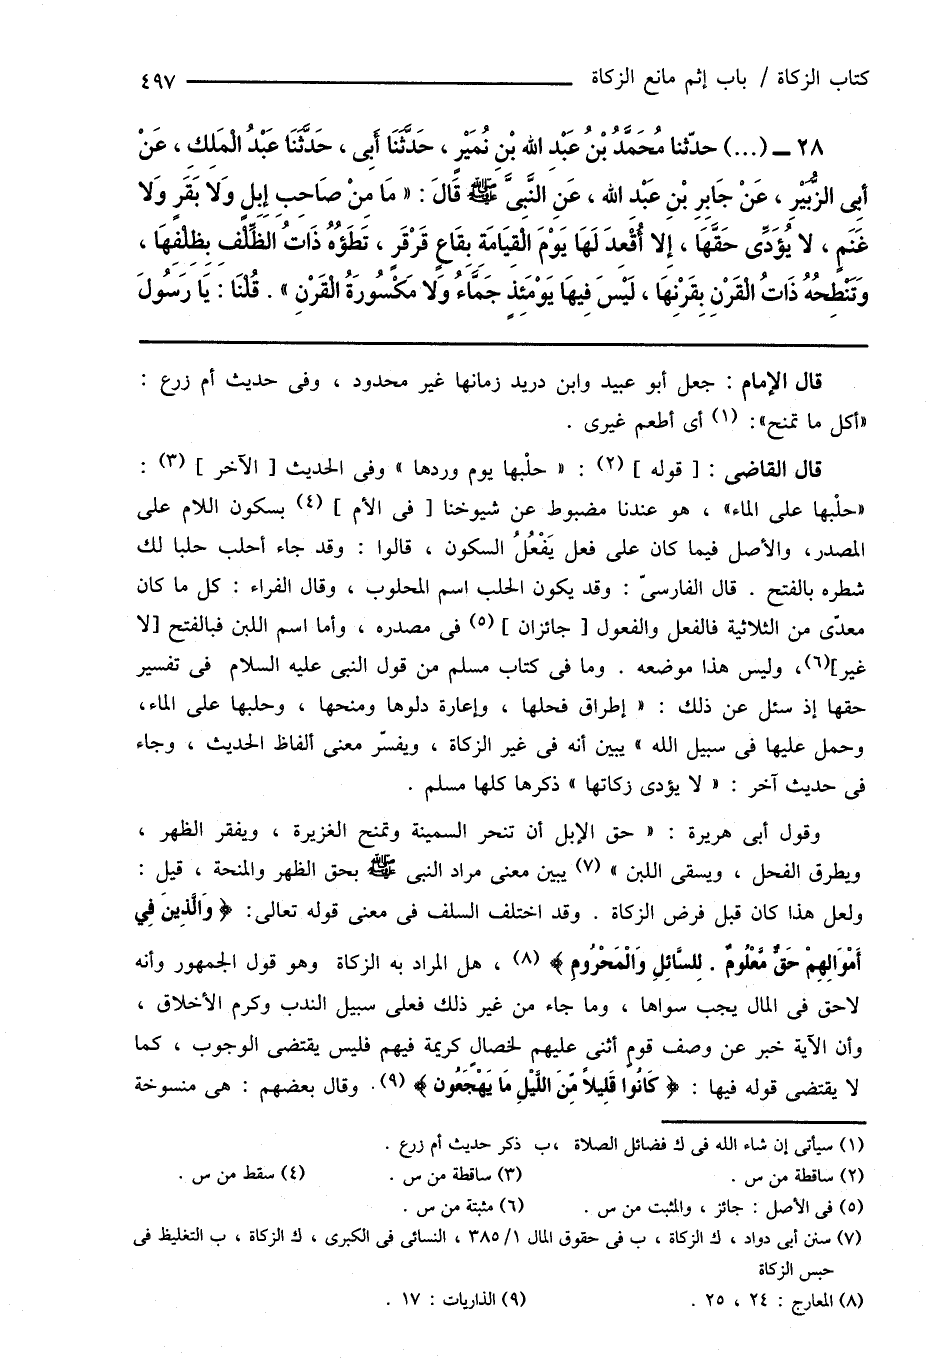 كتاب الزكاة / باب إثم مانع الزكاة ٤٩٧
٢٨ ــ (...) حدّثنا مُحَمَّدُ بْنُ عَبْدِ الله بْنِ نُمَيْرٍ ، حَدَّثَنَا أَبِى ، حَدَّثَنَا عَبْدُ الْمَلِكِ ، عَنْ
أَبِى الزُّبَيْرِ ، عَنْ جَابِرِ بْنِ عَبْدِ الله ، عَنِ النَّبِىِّ ﷺ قَالَ : « مَا مِنْ صَاحِبِ إِبِلٍ وَلَا بَقَرٍ وَلَا
غَنَمٍ ، لا يُؤَدِّى حَقَّهَا ، إِلا أُقْعِدَ لَهَا يَوْمَ الْقِيَامَةِ بِقَاعٍ قَرْقَرٍ ، تَطَؤُهُ ذَاتُ الظِّلْفِ بِظِلْفِهَا ،
وَتَنْطِحُهُ ذَاتُ الْقَرْنِ بِقَرْنِهَا ، لَيْسَ فِيهَا يَوْمَئِذٍ جَمَّاءُ وَلَا مَكْسُورَةُ الْقَرْنِ » . قُلْنَا : يَا رَسُولَ
قال الإمام : جعل أبو عبيد وابن دريد زمانها غير محدود ، وفى حديث أم زرع :
«أكل ما تمنح»: (١) أى أطعم غيرى .
قال القاضى : [ قوله ] (٢) : « حلْبها يوم وردها » وفى الحديث [ الآخر ] (٣) :
«حلْبها على الماء» ، هو عندنا مضبوط عن شيوخنا [ فى الأم ] (٤) بسكون اللام على
المصدر، والأصل فيما كان على فعل يَفْعُلُ السكون ، قالوا : وقد جاء أحلب حلبا لك
شطره بالفتح . قال الفارسىّ : وقد يكون الحلب اسم المحلوب ، وقال الفراء : كل ما كان
معدّى من الثلاثية فالفعل والفعول [ جائزان ] (٥) فى مصدره ، وأما اسم اللبن فبالفتح [لا
غير](٦)، وليس هذا موضعه . وما فى كتاب مسلم من قول النبى عليه السلام فى تفسير
حقها إذ سئل عن ذلك : « إطراق فحلها ، وإعارة دلوها ومنحها ، وحلبها على الماء،
وحمل عليها فى سبيل الله » يبين أنه فى غير الزكاة ، ويفسّر معنى ألفاظ الحديث ، وجاء
فى حديث آخر : « لا يؤدى زكاتها » ذكرها كلها مسلم .
وقول أبى هريرة : « حق الإبل أن تنحر السمينة وتمنح الغزيرة ، ويفقر الظهر ،
ويطرق الفحل ، ويسقى اللبن » (٧) يبين معنى مراد النبى ﷺ بحق الظهر والمنحة ، قيل :
ولعل هذا كان قبل فرض الزكاة . وقد اختلف السلف فى معنى قوله تعالى: ﴿ وَالَّذِينَ فِي
أَمْوَالِهِمْ حَقٌّ مَّعْلُومٌ . لِلسَّائِلِ وَالْمَحْرُومِ ﴾ (٨) ، هل المراد به الزكاة وهو قول الجمهور وأنه
لاحق فى المال يجب سواها ، وما جاء من غير ذلك فعلى سبيل الندب وكرم الأخلاق ،
وأن الآية خبر عن وصف قومٍ أثنى عليهم لخصالٍ كريمة فيهم فليس يقتضى الوجوب ، كما
لا يقتضى قوله فيها : ﴿ كَانُوا قَلِيلاً مِّنَ اللَّيْلِ مَا يَهْجَعُون ﴾ (٩). وقال بعضهم : هى منسوخة
(١) سيأتى إن شاء الله فى ك فضائل الصلاة ،ب ذكر حديث أم زرع .
(٢) ساقطة من س . (٣) ساقطة من س . (٤) سقط من س .
(٥) فى الأصل : جائز ، والمثبت من س . (٦) مثبتة من س .
(٧) سنن أبى دواد ، ك الزكاة ، ب فى حقوق المال ١/ ٣٨٥ ، النسائى فى الكبرى ، ك الزكاة ، ب التغليظ فى
حبس الزكاة
(٨) المعارج : ٢٤ ، ٢٥ . (٩) الذاريات : ١٧ .